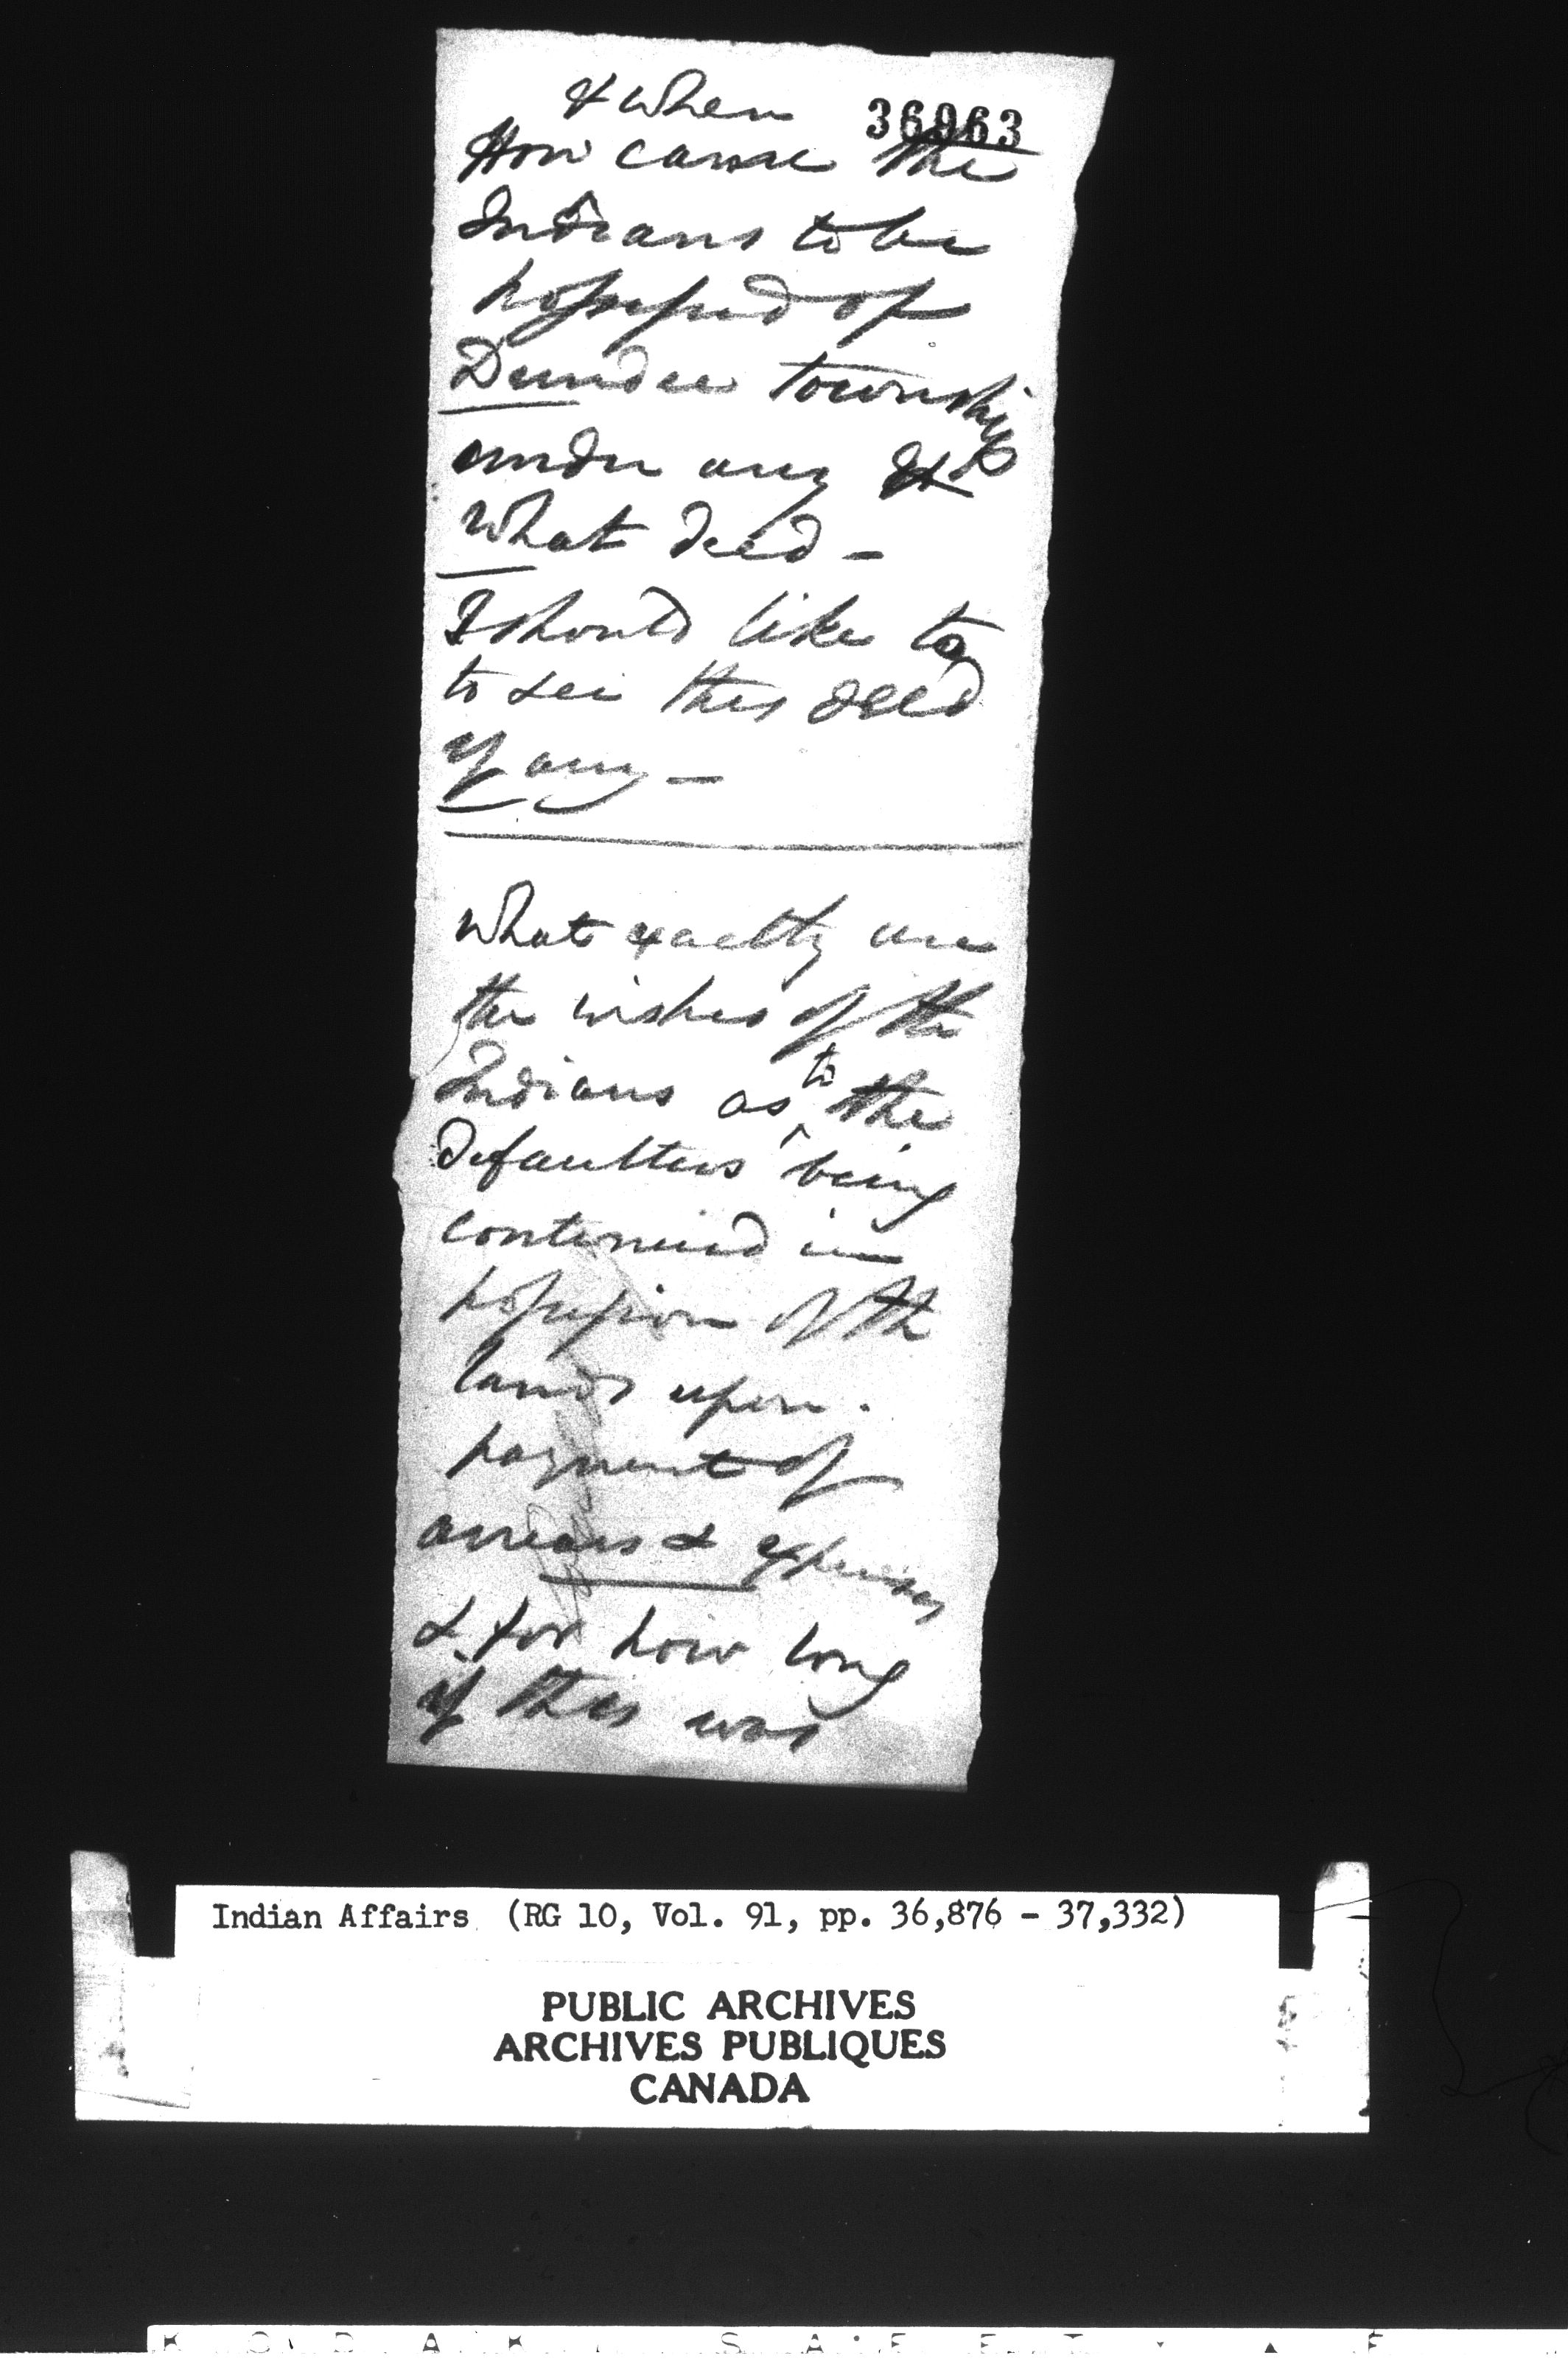 & when
36963
How came the
Indians to be
possessed of
Dundee township
under any &
what deed -
I should like to
to see this deed
if any -
What exactly are
the wishes of the
Indians as to the
defaulters being
continued in
possession of the
lands upon.
payment of
arrears & expenses
& for how long
if this was
Indian Affairs (RG 10, Vol. 91, pp. 36,876 - 37,332)
PUBLIC ARCHIVES
ARCHIVES PUBLIQUES
CANADA